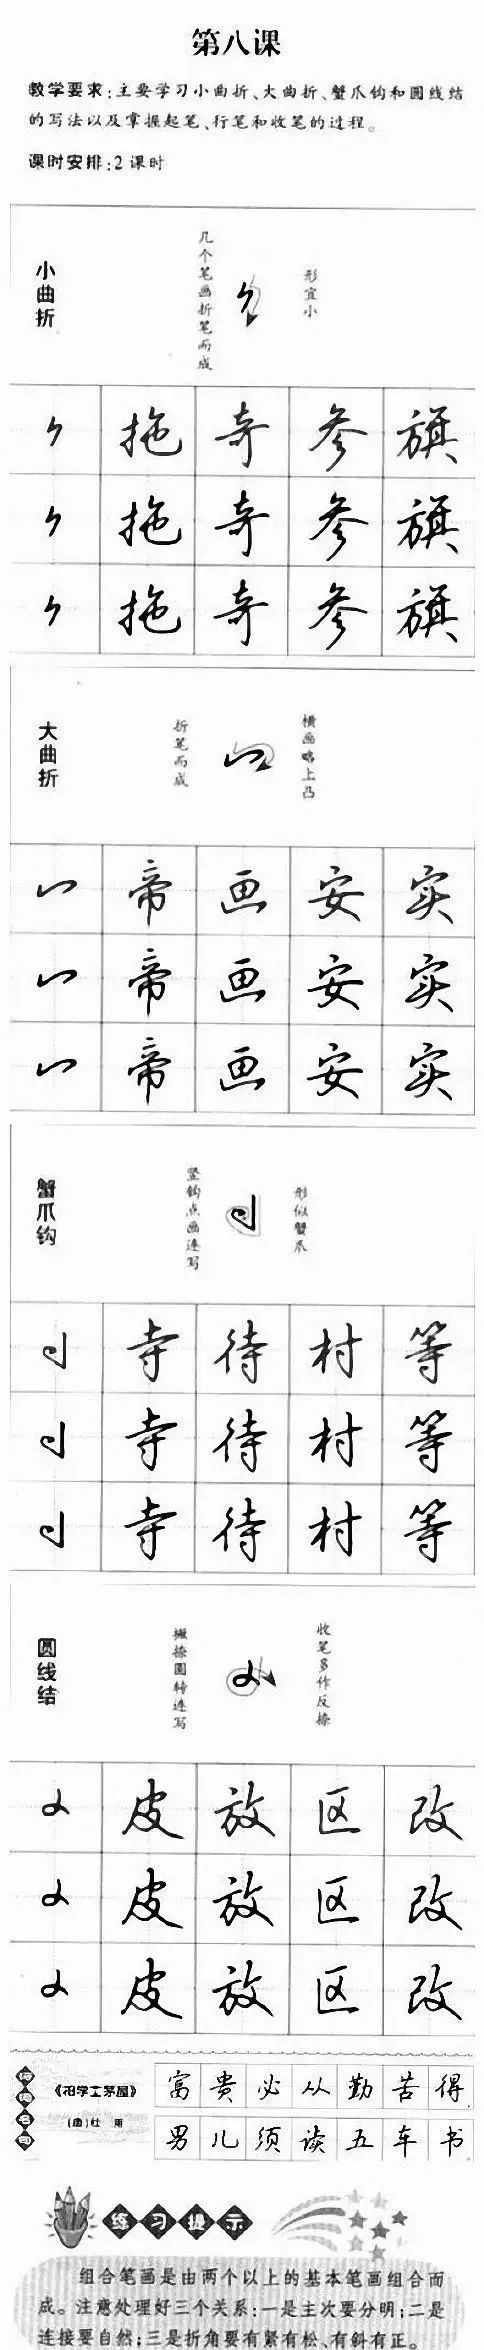 第八课
教学要求:主要学习小曲折、大曲折、蟹爪钩和圆线结
的写法以及掌握起笔、行笔和收笔的过程。
课时安排:2课时
小曲折
几个笔画折笔而成
形宜小
拖 奇 参 旗
拖 奇 参 旗
拖 奇 参 旗
大曲折
折笔而成
横画略上凸
帝 画 安 实
帝 画 安 实
帝 画 安 实
蟹爪钩
竖钩点画连写
形似蟹爪
寺 待 村 等
寺 待 村 等
寺 待 村 等
圆线结
撇捺圆转连写
收笔多作反捺
皮 放 区 改
皮 放 区 改
皮 放 区 改
《柏学士茅屋》
(唐)杜甫
富贵必从勤苦得
男儿须读五车书
练习提示
组合笔画是由两个以上的基本笔画组合而
成。注意处理好三个关系:一是主次要分明;二是
连接要自然;三是折角要有紧有松、有斜有正。